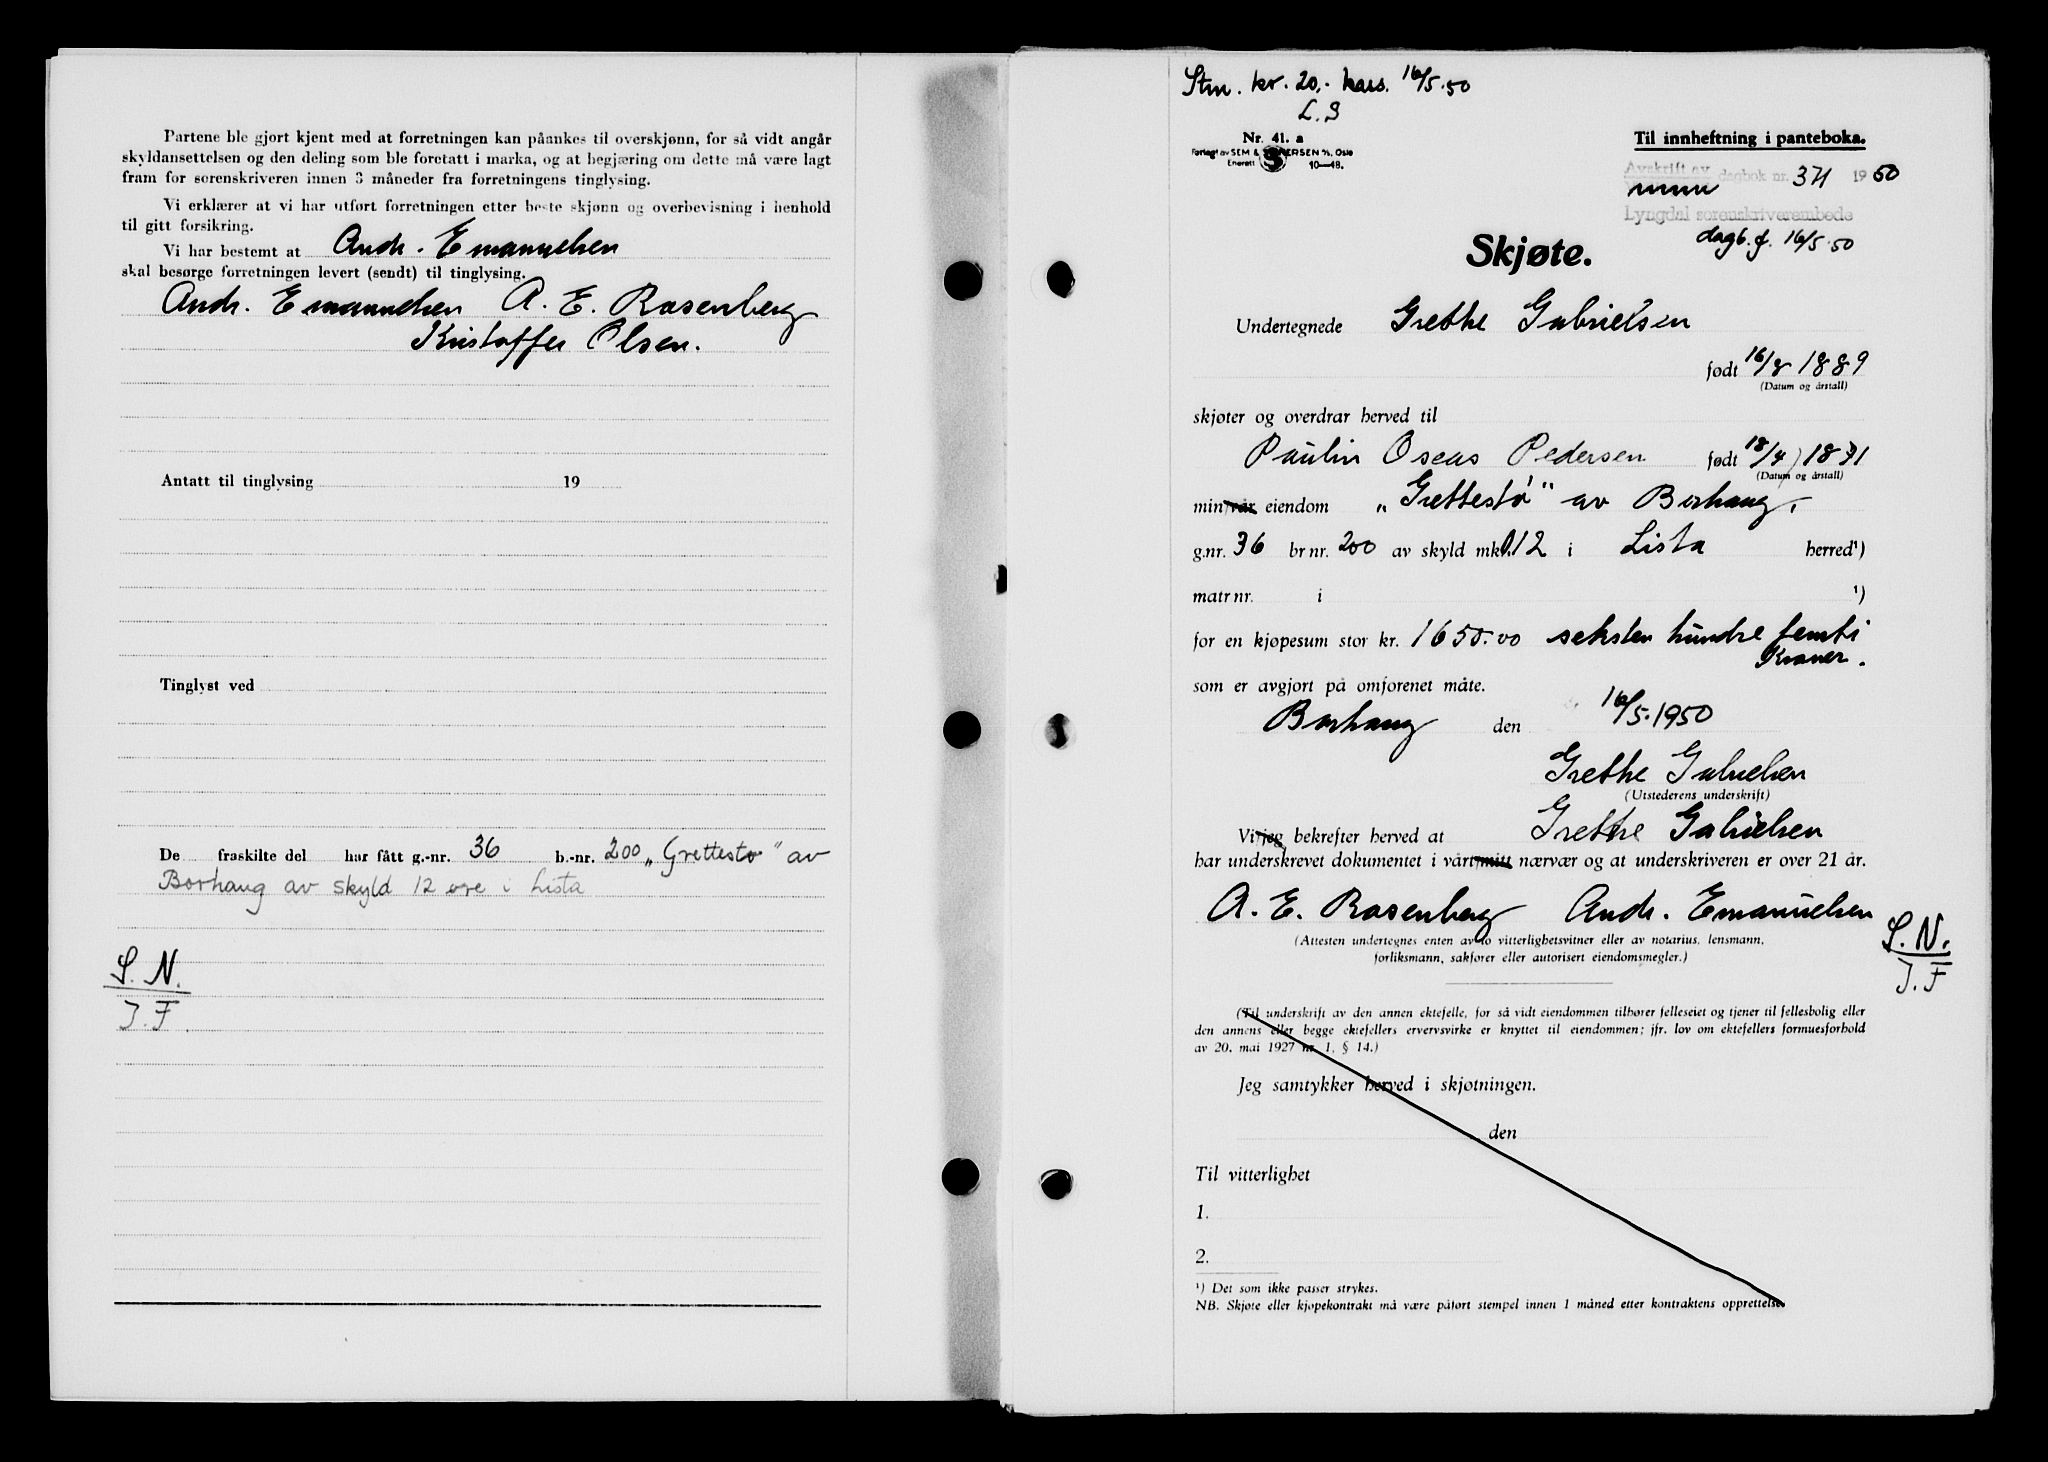 Partene ble gjort kjent med at forretningen kan påankes til overskjønn, for så vidt angår
skyldansettelsen og den deling som ble foretatt i marka, og at begjæring om dette må være lagt
fram for sorenskriveren innen 3 måneder fra forretningens tinglysing.
Vi erklærer at vi har utført forretningen etter beste skjønn og overbevisning i henhold
til gitt forsikring.
Vi har bestemt at Andr. Emanuelsen
skal besørge forretningen levert (sendt) til tinglysing.
Andr. Emanuelsen A. E. Rosenberg
Kristoffer Olsen.
Antatt til tinglysing 19
Tinglyst ved
De fraskilte del har fått g.-nr. 36 b.-nr. 200 „Grettestø" av
Borhaug av skyld 12 øre i Lista
S. N.
J. F.
Stm. kr. 20,- kass. 16/5.50
L. S
Nr. 41. a
Forlagt av SEM & STENERSEN A/S, Oslo
Enerett 10—48.
Til innheftning i panteboka.
Avskrift av dagbok nr. 371 1950
Lyngdal sorenskriverembede
dagb. f. 16/5.50
Skjøte.
Undertegnede Grethe Gabrielsen
født 16/8 1889
(Datum og årstall)
skjøter og overdrar herved til
Paulin Oseas Pedersen født 18/4 1891
(Datum og årstall)
min/vår eiendom „Grettestø" av Borhaug,
g.nr. 36 br nr. 200 av skyld mk 0.12 i Lista herred¹)
matr nr. i ¹)
for en kjøpesum stor kr. 1650.00 seksten hundre femti
Kroner.
som er avgjort på omforenet måte.
Borhaug den 16/5.1950
Grethe Gabrielsen
(Utstederens underskrift)
Vi/jeg bekrefter herved at Grethe Gabrielsen
har underskrevet dokumentet i vårt/mitt nærvær og at underskriveren er over 21 år.
A. E. Rosenberg Andr. Emanuelsen
(Attesten undertegnes enten av to vitterlighetsvitner eller av notarius, lensmann,
forliksmann, sakfører eller autorisert eiendomsmegler.)
S. N.
J. F
(Til underskrift av den annen ektefelle, for så vidt eiendommen tilhører felleseiet og tjener til fellesbolig eller
den annens eller begge ektefellers ervervsvirke er knyttet til eiendommen; jfr. lov om ektefellers formuesforhold
av 20. mai 1927 nr. 1, § 14.)
Jeg samtykker herved i skjøtningen.
den
Til vitterlighet
1.
2.
¹) Det som ikke passer strykes.
NB. Skjøte eller kjøpekontrakt må være påført stempel innen 1 måned etter kontraktens opprettelse.